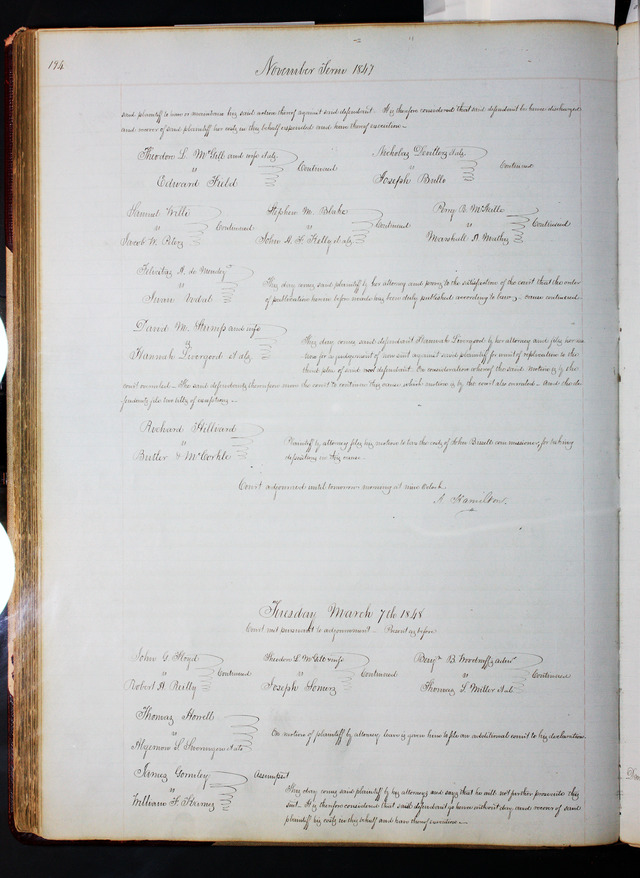 194
November Term 1847
said plaintiff to have or maintain his said action thereof against said defendant. It is therefore considered that said defendant be hence discharged
and recover of said plaintiff his costs in this behalf expended and have thereof execution —
Theodore L. McGill and wife et als
vs
Edward Field
Continued
Nicholas Devillers et als
vs
Joseph Butto
Continued
Samuel Willi
vs
Jacob W.
Continued
Stephen M. Blake
vs
John H. F. Kelly et als
Continued
Perry B.
vs
Marshall
Continued
Felicitas A. de Mendez
vs
Twan Vidal
This day came said plaintiff by her attorney and proves to the satisfaction of the court that the order
of publication herein before made has been duly published according to law, cause continued.
David M. Stumps and wife
vs
Hannah Livergood et als
This day comes said defendant Hannah Livergood by her attorney and files her mo-
tion for a judgement of non suit against said plaintiff for want of replication to the
third plea of said defendant. On consideration whereof the said motion is by the
court overruled — The said defendants thereupon move the court to continue this cause which motion is by the court also overruled — And the de-
fendants file two bills of exceptions —
Richard Hilliard
vs
Butler & McCorkle
Plaintiff by attorney files his motion to tax the costs of John commissioner, for taking
depositions in this cause —
Court adjourned until tomorrow morning at nine oclock
A. Hamilton.
Tuesday March 7th 1848
Court met pursuant to adjournment — Present as before
John G. Floyd
vs
Robert A. Reilly
Continued
Theodore L. McGill & wife
vs
Joseph Somers
Continued
Benjn B. Woodruff's admr
vs
Thomas L. Miller et als
Continued
Thomas Howell
vs
Algernon S. et als
On motion of plaintiff by attorney leave is given him to file an additional count to his declaration.
James Gormley
vs
William F.
Assumpsit
This day comes said plaintiff by his attorney and says that he will not further prosecute this
suit. It is therefore considered that said defendant go hence without day and recover of said
plaintiff his costs in this behalf and have thereof execution —